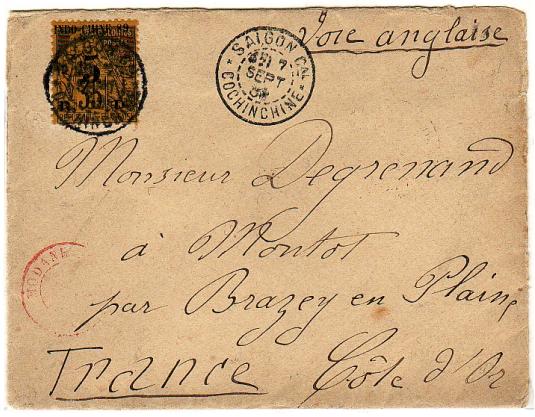 INDO-CHINE 89.
5
35
Voie anglaise
SAIGON CAL
7
SEPT
COCHINCHINE
Monsieur Degrenand
à Montot
MODANE
par Brazey en Plaine
France Côte d'Or